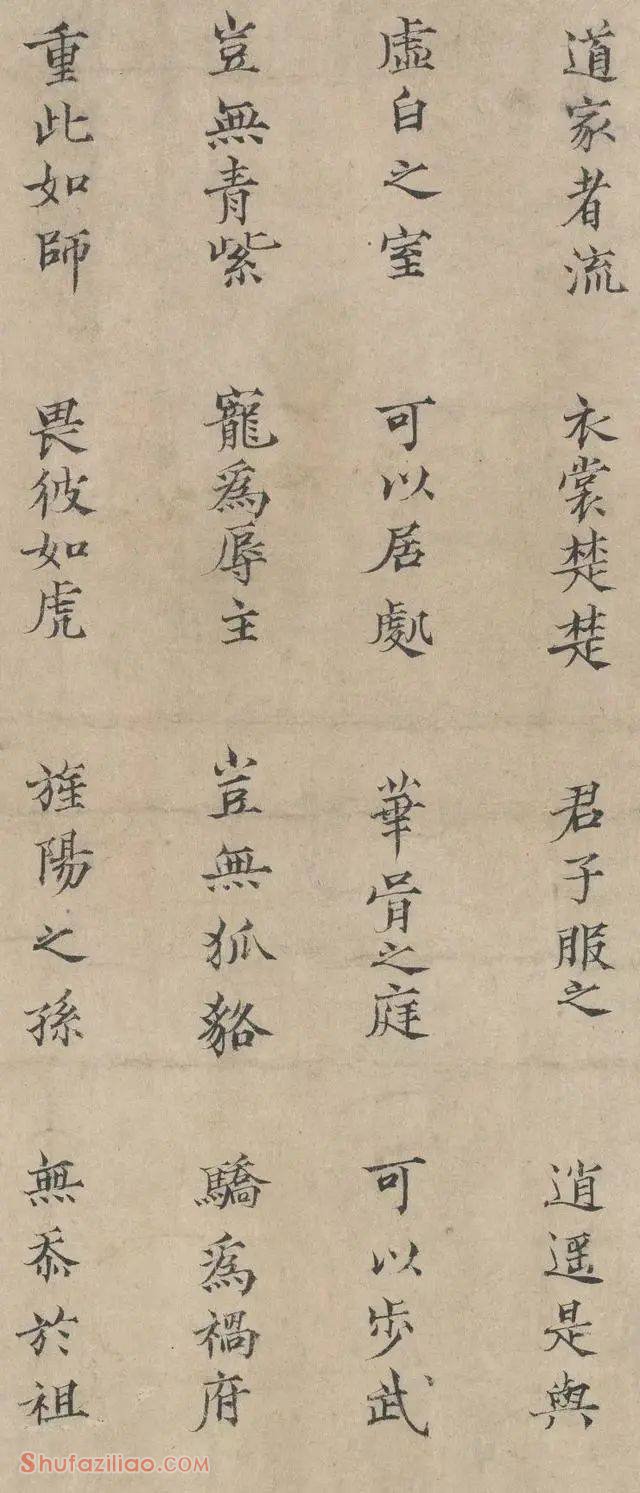 道家者流 衣裳楚楚 君子服之 逍遥是與
虛白之室 可以居處 華胥之庭 可以步武
豈無青紫 寵為辱主 豈無狐貉 驕為禍府
重此如師 畏彼如虎 旌陽之孫 無忝於祖
Shufaziliao.com